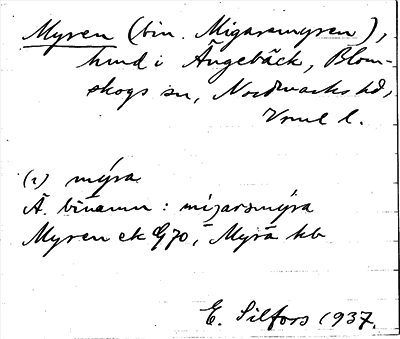 Myren (bin. Migarsmyren),
hmd i Ängebäck, Blom-
skogs sn, Nordmarks hd,
Vrml l.
(1) mýra
Ä. binamn: migarsmýra
Myren ek G 70, Myra kb
E. Silfors 1937.